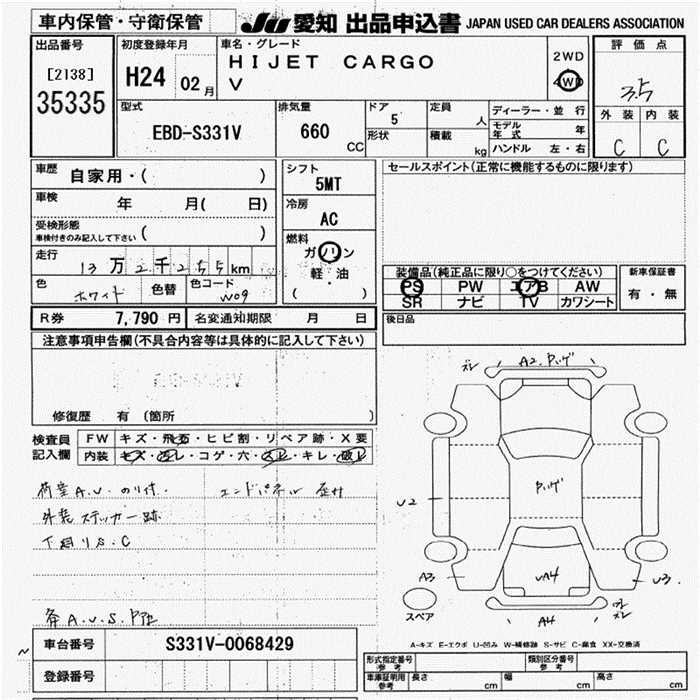 車内保管・守衛保管
JU 愛知 出品申込書 JAPAN USED CAR DEALERS ASSOCIATION
出品番号
[2138]
35335
初度登録年月
H24 02月
車名・グレード
HIJET CARGO
V
2WD
4WD
評価点
3.5
外装 内装
C C
型式
EBD-S331V
排気量
660
CC
ドア
5
形状
定員
人
積載
kg
ディーラー・並行
モデル年式 年
ハンドル 左・右
車歴
自家用・( )
車検
年 月( 日)
受検形態
車検付きのみ記入して下さい ( )
走行
13万2千255km
色
ホワイト
色替
色コード
W09
シフト
5MT
冷房
AC
燃料
ガソリン
軽・油
( )
セールスポイント(正常に機能するものに限ります)
装備品(純正品に限り○をつけてください)
PS PW エアB AW
SR ナビ TV カワシート
新車保証書
有・無
R券 7,790円 名変通知期限 月 日
後日品
注意事項申告欄(不具合内容等は具体的に記入して下さい)
EBD-S331V
修復歴 有 (箇所 )
検査員記入欄
FW キズ・飛石・ヒビ割・リペア跡・X要
内装 キズ・汚レ・コゲ・穴・スレ・キレ・破レ
荷室A.U.のり付.
外装ステッカー跡
下廻りS.C
A2.
U2
A3
UA4
A4
U3
スペア
A-キズ E-エクボ U-凹み W-補修跡 S-サビ C-腐食 XX-交換済
車台番号 S331V-0068429
登録番号
形式指定番号 参考
類別区分番号 参考
車庫証明用 参考
長さ cm
幅 cm
高さ cm